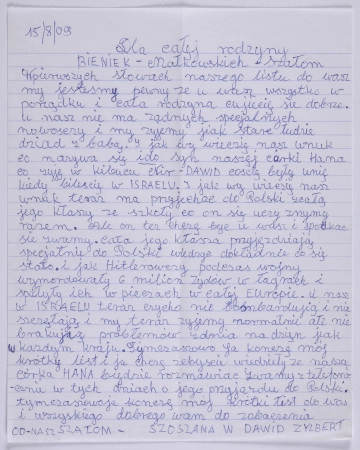 15/8/09
Dla całej rodzyny
BIENIEK - Małkowskich - szalom
W pierwszych słowach naszego listu do was
my jesteśmy pewny że u was wszystko w
porządku i cała rodzyna czujecię się dobrze.
U nasz nie ma żadnych specjalnych
nowoszczy i my żyjemy jak stare ludzie
dziad z babą. I jak wy wieczię nasz wnuk
co nazywa się ido syn naszej carki Hana
co żyje w kibucu DAWID coście byly unię
kiedy byliscię w ISRAELU. I jak wy więcię nasz
wnuk teras ma przyjechać do Polski z całą
jego klasy ze szkoły co on się uczy z nymy
razem. ale on tes chcę byc u was i spotkac
się z wamy. cała jego klasza przyjezdzają
specjalnie do Polski wiedzięc dokładnie co się
stało. i jak Hitlerowcy podczas wojny
wymordowaly 6 milion żydow w łagrach i
spalyly ich w piecach w całej Europie. U nasz
w ISRAELU teraz cicho nie bombardują i nie
szczelają i my teraz żyjemy normalnie ale nie
brakuję problemow z dnia na dzyn jak
w każdym kraju. Tymczaszowo ja konczę mój
krotky list. i ja chcę żebyscię wiedziely że nasza
corka HANA będzie rozmawiac z wamy telefono-
cznie w tych dniach o jego przyjazdu do Polski.
tymczasowie konczę mój krotki list do was
i wszyskiego dobrego wam do zobaczenia
CO-NASZ SZALOM - SZOSZANA W DAWID ZYLBERT